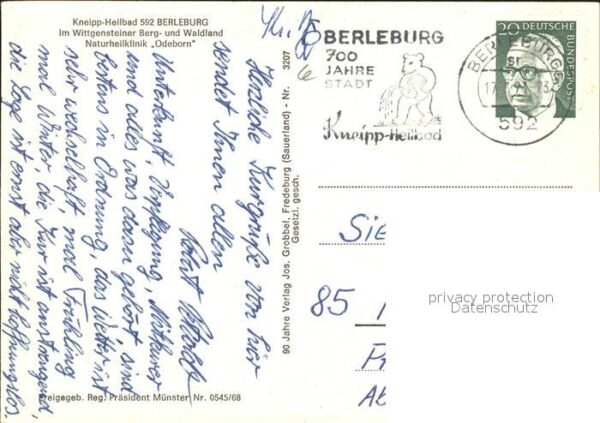 Kneipp-Heilbad 592 BERLEBURG
Im Wittgensteiner Berg- und Waldland
Naturheilklinik „Odeborn"
Herzliche Kurgrüße von hier
sendet Ihnen allen
Unterkunft, Verpflegung,
und alles was dazu gehört sind
bestens in Ordnung, das Wetter ist
sehr wechselhaft, mal Frühling
mal Winter, die Kur ist anstrengend,
die Lage ist ernst aber nicht hoffnungslos.
Freigegeb. Reg. Präsident Münster Nr. 0545/68
90 Jahre Verlag Jos. Grobbel, Fredeburg (Sauerland) - Nr. 3207
Gesetzl. gesch.
BERLEBURG
700
JAHRE
STADT
Kneipp-Heilbad
BERLEBURG
592
20
DEUTSCHE
BUNDESPOST
Sie
85
privacy protection
Datenschutz